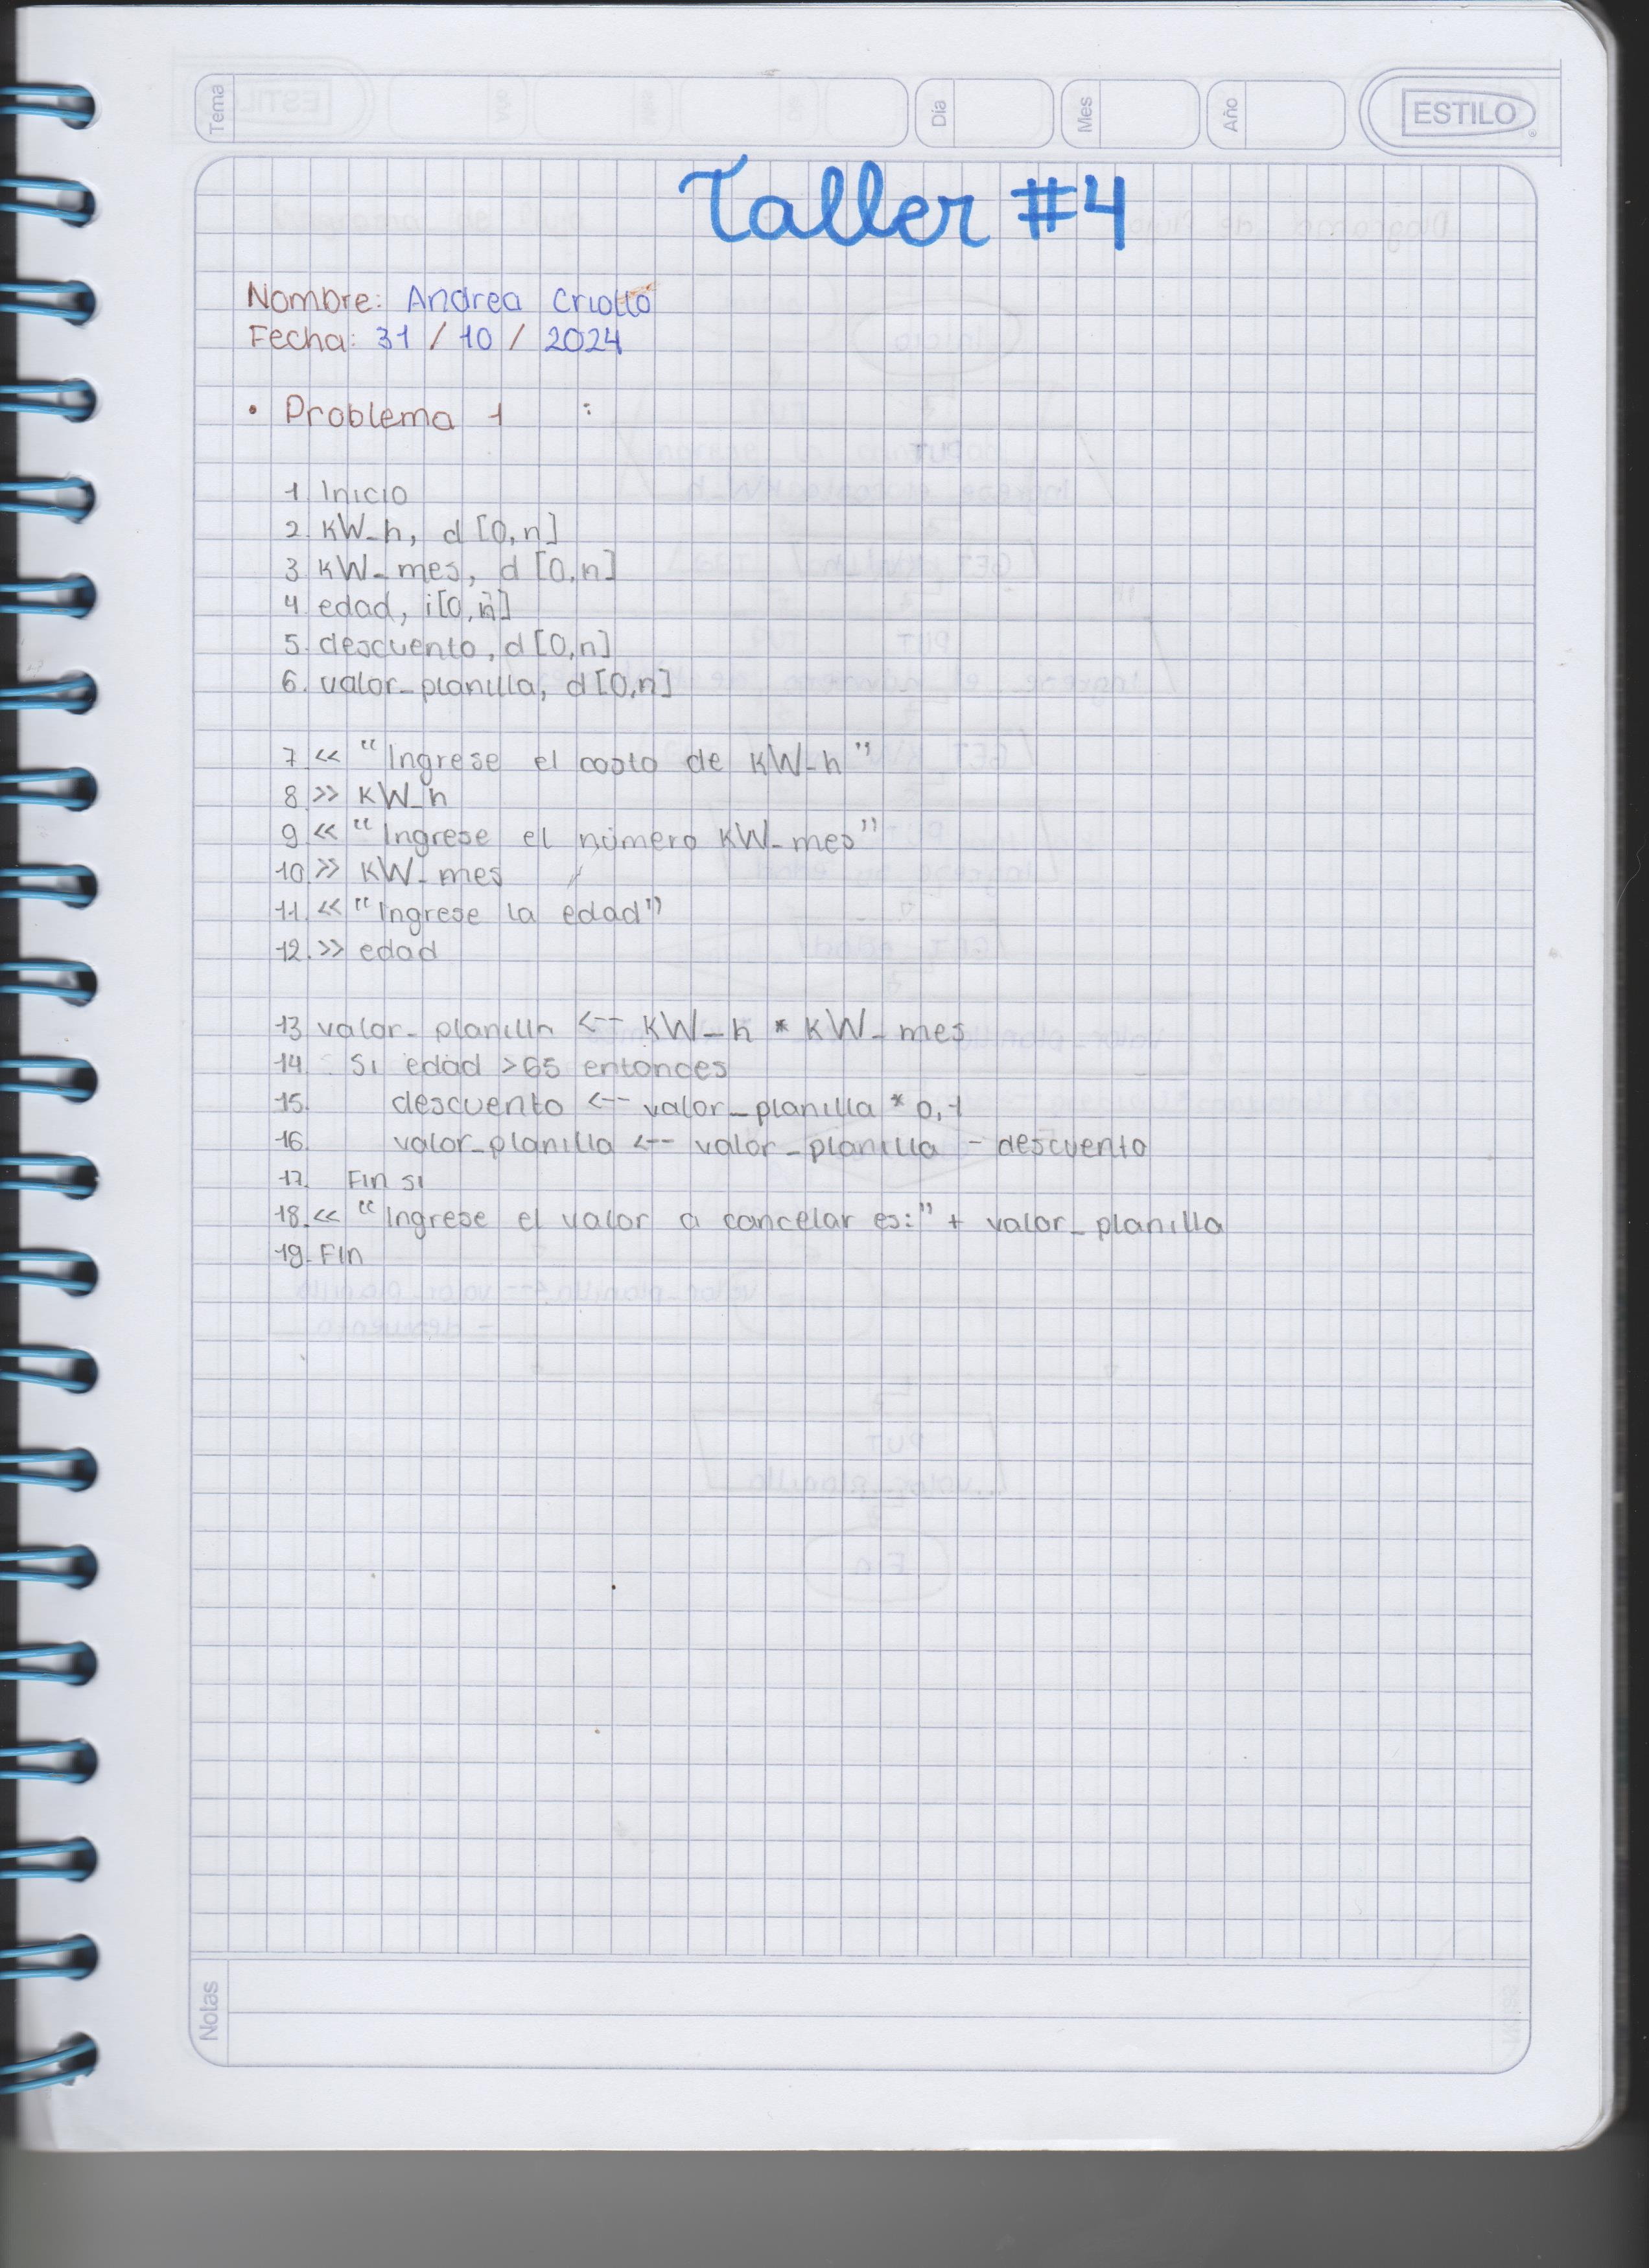 Tema
Día
Mes
Año
ESTILO
Taller #4
Nombre: Andrea Criollo
Fecha: 31 / 10 / 2024
• Problema 1 :
1. Inicio
2. KW_h, d [0,n]
3. KW_mes, d [0,n]
4. edad, i[0,n]
5. descuento, d [0,n]
6. valor_planilla, d [0,n]
7. << "Ingrese el costo de KW_h"
8. >> KW_h
9. << "Ingrese el número KW_mes"
10. >> KW_mes
11. << "Ingrese la edad"
12. >> edad
13. valor_planilla <-- KW_h * KW_mes
14. Si edad >65 entonces
15. descuento <-- valor_planilla * 0,1
16. valor_planilla <-- valor_planilla - descuento
17. Fin si
18. << "Ingrese el valor a cancelar es:" + valor_planilla
19. Fin
Notas